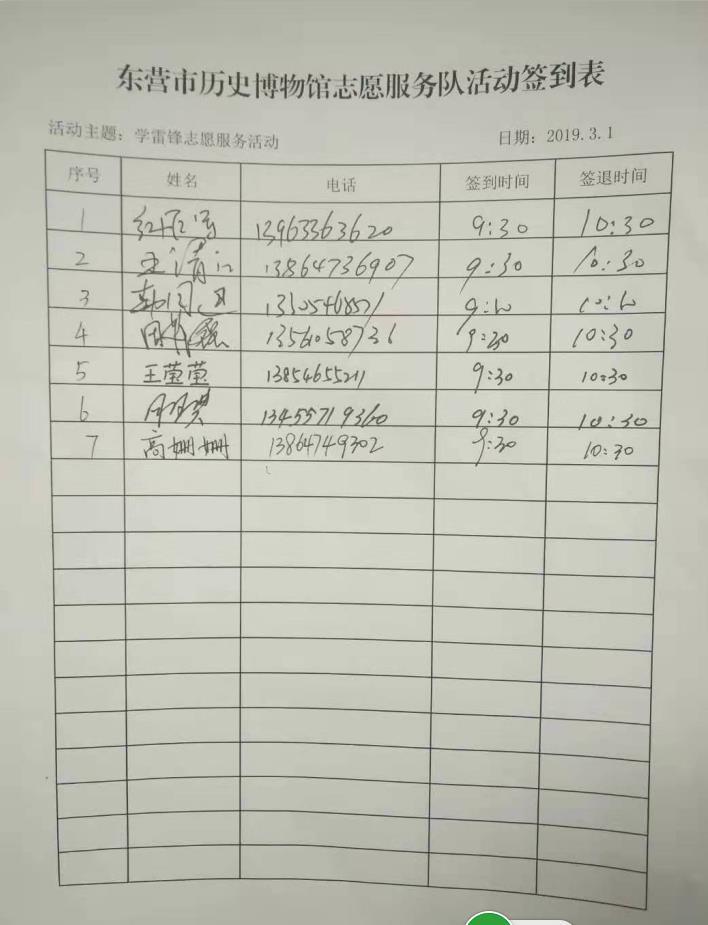 东营市历史博物馆志愿服务队活动签到表
活动主题：学雷锋志愿服务活动 日期：2019.3.1
序号 姓名 电话 签到时间 签退时间
1 13963363620 9:30 10:30
2 王清江 13864736907 9:30 10:30
3 9:30 10:30
4 13561058736 9:30 10:30
5 王莹莹 13854655211 9:30 10:30
6 13455719360 9:30 10:30
7 高姗姗 13864749302 9:30 10:30